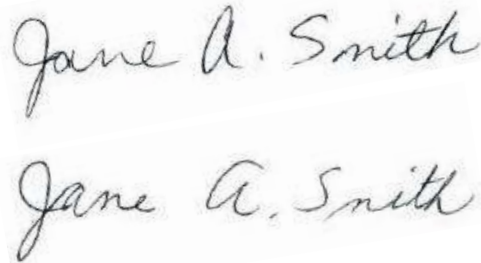 Jane A. Smith
Jane A. Smith